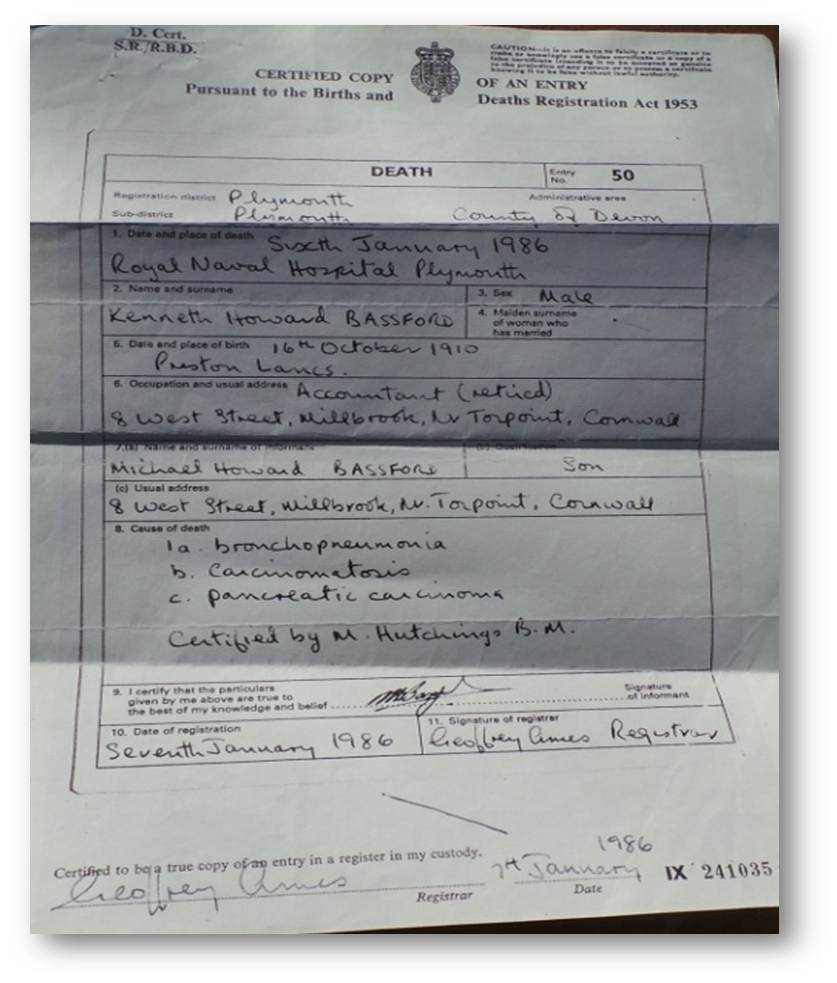 D. Cert.
S.R./R.B.D.
CAUTION—It is an offence to falsify a certificate or to
make or knowingly use a false certificate or a copy of a
false certificate intending it to be accepted as genuine
to the prejudice of any person or to possess a certificate
knowing it to be false without lawful authority.
CERTIFIED COPY OF AN ENTRY
Pursuant to the Births and Deaths Registration Act 1953
DEATH Entry No. 50
Registration district Plymouth Administrative area
Sub-district Plymouth County of Devon
1. Date and place of death Sixth January 1986
Royal Naval Hospital Plymouth
2. Name and surname 3. Sex Male
Kenneth Howard BASSFORD 4. Maiden surname
of woman who
has married
5. Date and place of birth 16th October 1910
Preston Lancs.
6. Occupation and usual address Accountant (retired)
8 West Street, Millbrook, Nr Torpoint, Cornwall
7.(a) Name and surname of informant (b) Qualification
Michael Howard BASSFORD Son
(c) Usual address
8 West Street, Millbrook, Nr. Torpoint, Cornwall
8. Cause of death
1a. bronchopneumonia
b. Carcinomatosis
c. pancreatic carcinoma
Certified by M. Hutchings B.M.
9. I certify that the particulars
given by me above are true to
the best of my knowledge and belief Signature
of informant
10. Date of registration 11. Signature of registrar
Seventh January 1986 Geoffrey Ames Registrar
Certified to be a true copy of an entry in a register in my custody.
Geoffrey Ames Registrar 7th January 1986 Date IX 241035